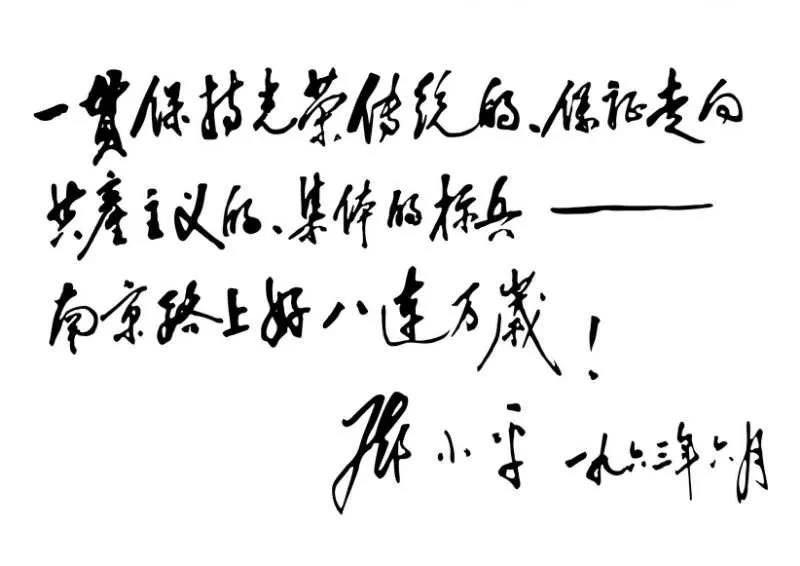 一貫保持光荣传统的、保证走向
共產主义的、集体的标兵——
南京路上好八连万岁！
邓小平 一九六三年六月